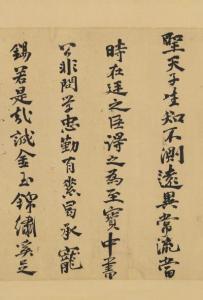 聖天子生知不測遠異常流當
時在廷之臣得之為至寶中書
公非問學忠勤有素曷承寵
錫若是哉誠金玉錦繡奚足